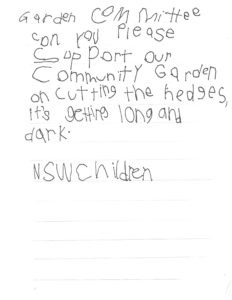 Garden Committee
can you Please
Sopport our
Community Garden
on cutting the hedges,
it's getting long and
dark.
NSWChildren